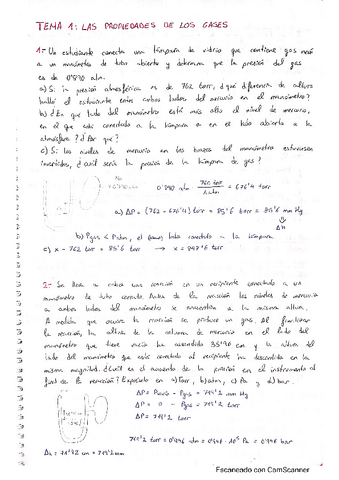 TEMA 1: LAS PROPIEDADES DE LOS GASES
1- Un estudiante conecta una lámpara de vidrio que contiene gas neón
a un manómetro de tubo abierto y determina que la presión del gas
es de 0'890 atm.
a) Si la presión atmosférica es de 762 torr, ¿qué diferencia de altura
halló el estudiante entre ambos lados del mercurio en el manómetro?
b) ¿En qué lado del manómetro está más alto el nivel de mercurio,
en el que está conectado a la lámpara o en el tubo abierto a la
atmósfera? ¿Por qué?
c) Si los niveles de mercurio en los brazos del manómetro estuviesen
invertidos, ¿cuál sería la presión de la lámpara de gas?
0'890 atm · 760 torr / 1 atm = 676'4 torr
a) ΔP = (762 - 676'4) torr = 85'6 torr = 85'6 mm Hg
Δh
b) Pgas < Patm, el lado conectado a la lámpara
c) x - 762 torr = 85'6 torr → x = 847'6 torr
2- Se lleva a cabo una reacción en un recipiente conectado a un
manómetro de tubo cerrado. Antes de la reacción los niveles de mercurio
a ambos lados del manómetro se encuentran a la misma altura.
A medida que ocurre la reacción se produce un gas. Al finalizar
la reacción, la altura de la columna de mercurio en el lado del
manómetro que tiene vacío ha ascendido 35'90 cm y la altura del
lado del manómetro que está conectado al recipiente ha descendido en la
misma magnitud. ¿Cuál es el aumento de la presión en el instrumento al
final de la reacción? Expóselo en a) Torr, b) atm, c) Pa y d) bar.
ΔP = Pvacío - Pgas = 719'2 mm Hg
ΔP = 0 - Pgas = 719'2 mm Hg
ΔP = 719'2 torr
719'2 torr = 0'946 atm = 0'946 · 10⁵ Pa = 0'946 bar
Δh = 71'92 cm = 719'2 mm
Escaneado con CamScanner